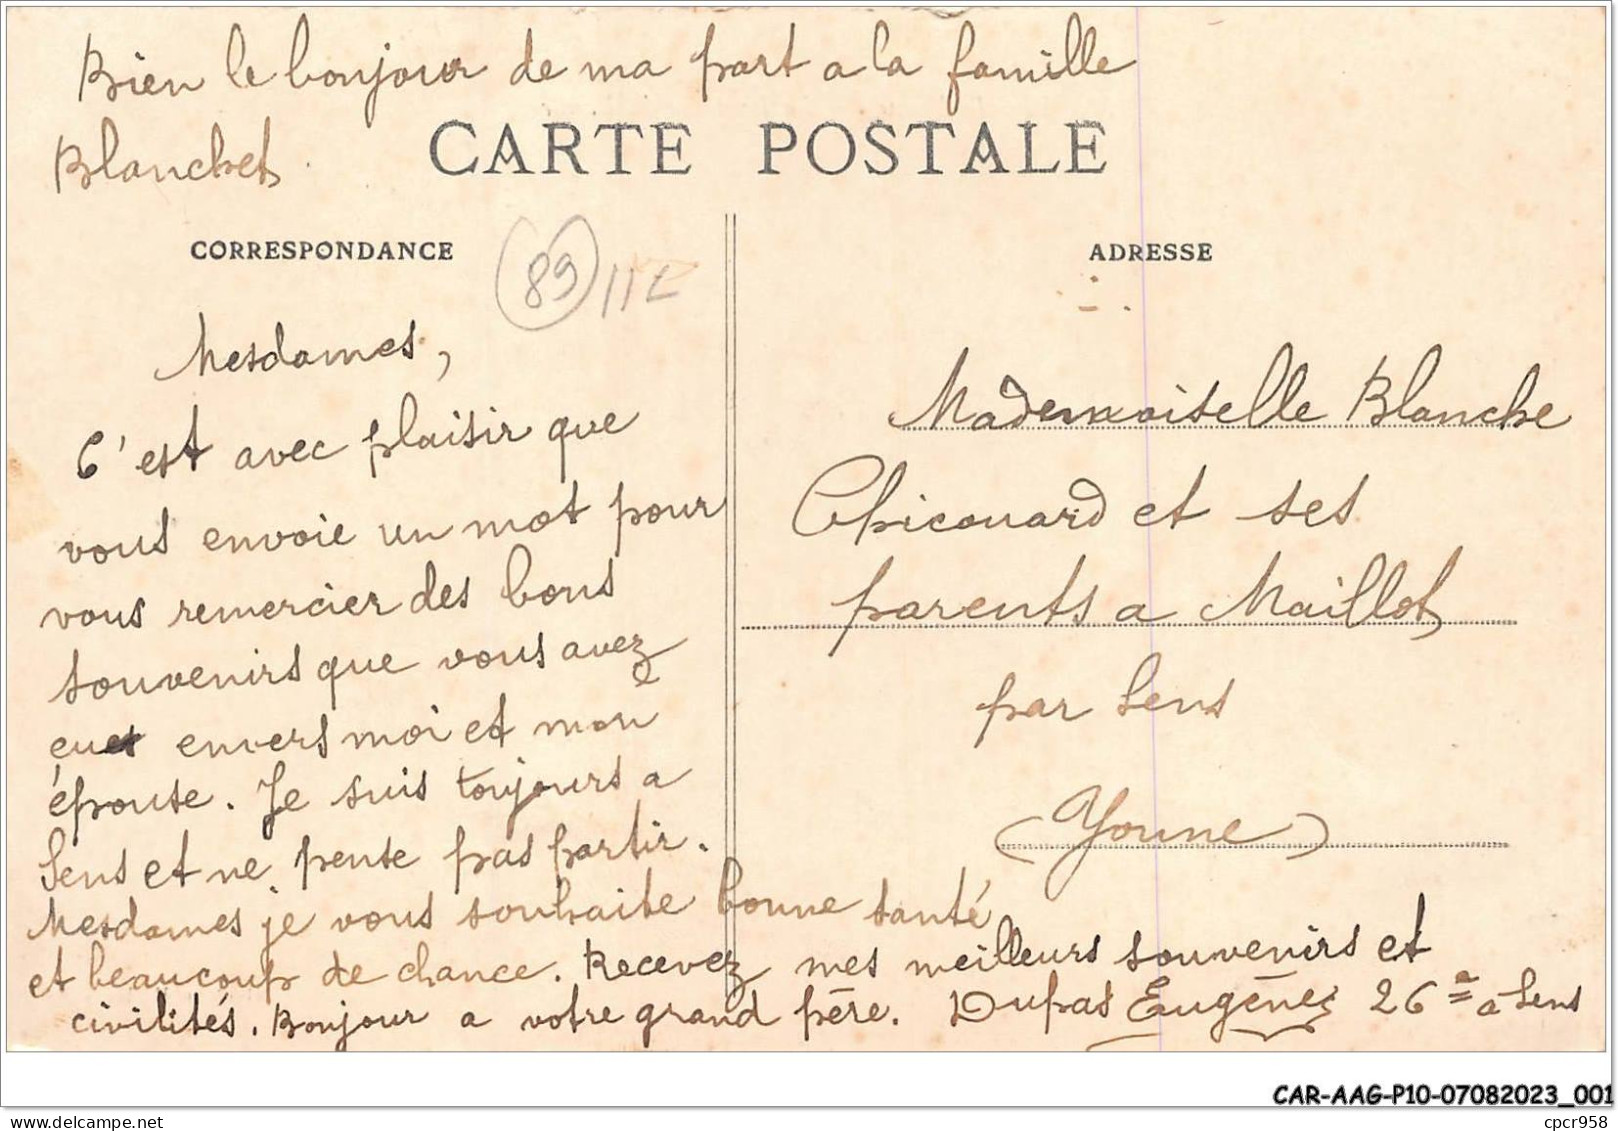 Bien le bonjour de ma part a la famille
Blanchet.
CARTE POSTALE
CORRESPONDANCE
ADRESSE
89
112
Mesdames,
C'est avec plaisir que
vous envoie un mot pour
vous remercier des bons
souvenirs que vous avez
eues envers moi et mon
épouse. Je suis toujours a
Sens et ne pense pas partir.
Mesdames je vous souhaite bonne santé
et beaucoup de chance. Recevez mes meilleurs souvenirs et
civilités. Bonjour a votre grand père. Dupas Eugène 26e a Sens
Mademoiselle Blanche
Chicouard et ses
parents a Maillot
par Sens
(Yonne)
CAR-AAG-P10-07082023_001
delcampe.net
cpcr958